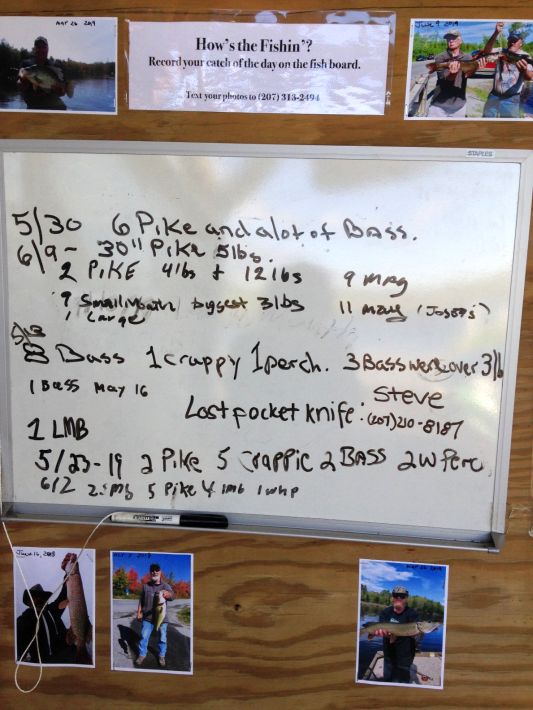 May 26 2019
How's the Fishin'?
Record your catch of the day on the fish board.
Text your photos to (207) 313-2494
June 9 2019
STAPLES
5/30 6 Pike and alot of Bass.
6/9 - 30" Pike 5lbs.
2 PIKE 4lbs + 12 lbs
9 Smallmouth biggest 3 lbs
1 Large
9
11
8 Bass 1 crappy 1 perch. 3 Bass were over 3 lb
1 Bass May 16
Steve
Lost pocket knife: (207) 210-8187
1 LMB
5/23-19 2 Pike 5 Crappie 2 BASS 2 W Perc
6/2 5 Pike 4 lmb 1 whp
June 16, 2019
2019
May 26 2019